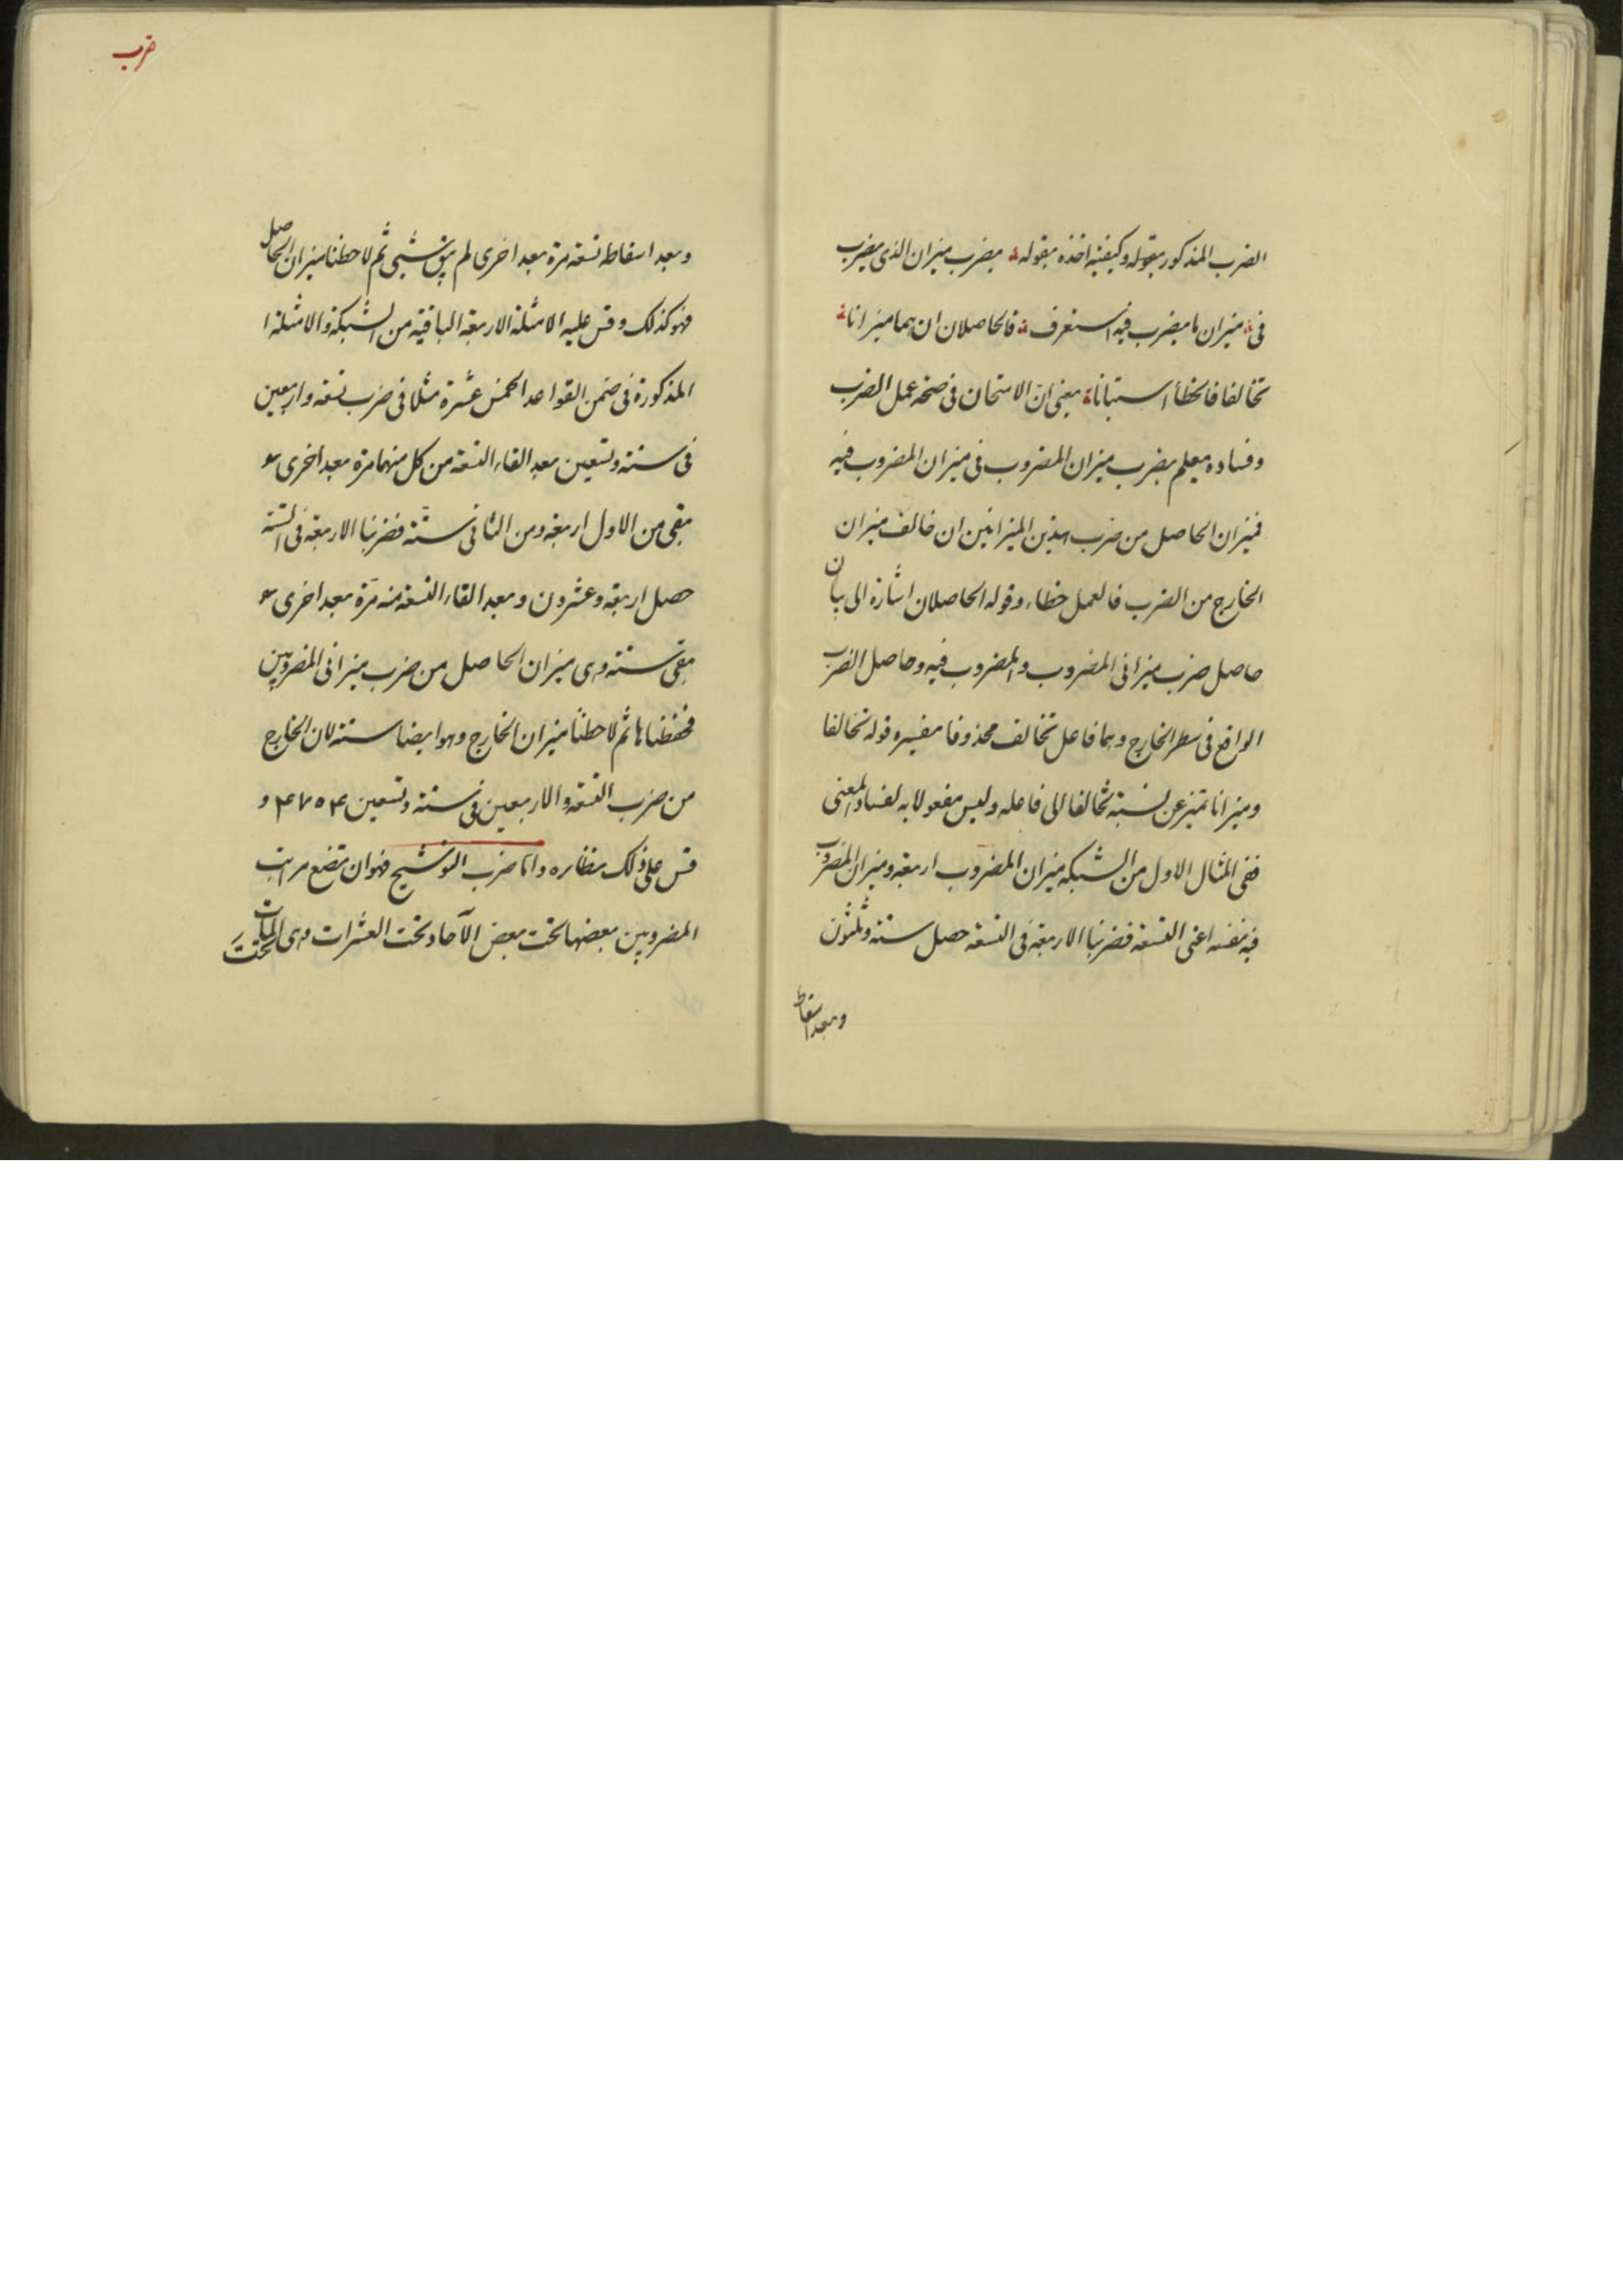 الضرب المذكور بقوله وكيفية اخذه بقوله يضرب ميزان الذى يضرب
فى ميزان ما يضرب فيه استعرف فالحاصلان ان هما ميزانا
تخالفا فالخطأ استبانا يعنى ان الامتحان فى صحة عمل الضرب
وفساده يعلم بضرب ميزان المضروب فى ميزان المضروب فيه
فميزان الحاصل من ضرب هذين الميزانين ان خالف ميزان
الخارج من الضرب فالعمل خطاء وقوله الحاصلان اشارة الى بيان
حاصل ضرب ميزانى المضروب والمضروب فيه وحاصل الضرب
الواقع فى سطر الخارج وهما فاعل تخالف محذوفا مفسره قوله تخالفا
وميزانا تميز عن نسبة تخالفا الى فاعله وليس مفعولا به لفساد المعنى
ففى المثال الاول من الشبكه ميزان المضروب اربعة وميزان المضروب
فيه نفسه اعنى التسعة فضربنا الاربعة فى التسعة حصل ستة وثلثون
وبعد اسقاط
ضرب
وبعد اسقاط تسعة مرة بعد اخرى لم يبق شيئى ثم لاحظنا ميزان الحاصل
فهو كذلك وقس عليه الامثلة الاربعة الباقية من الشبكة والامثلة ا
المذكورة فى ضمن القواعد الخمس عشرة مثلا فى ضرب تسعة واربعين
فى ستة وتسعين بعد القاء التسعة من كل منهما مرة بعد اخرى
بقى من الاول اربعة ومن الثانى ستة فضربنا الاربعة فى الستة
حصل اربعة وعشرون وبعد القاء التسعة منه مرة بعد اخرى
بقى ستة وهى ميزان الحاصل من ضرب ميزانى المضروبين
فحفظناها ثم لاحظنا ميزان الخارج وهو ايضا ستة لان الخارج
من ضرب التسعة والاربعين فى ستة وتسعين ۴۷۰۴ و
قس على ذلك نظائره واما ضرب التوشيح فهو ان تضع مراتب
المضروبين بعضها تحت بعض الآحاد تحت العشرات وهى تحت المئات